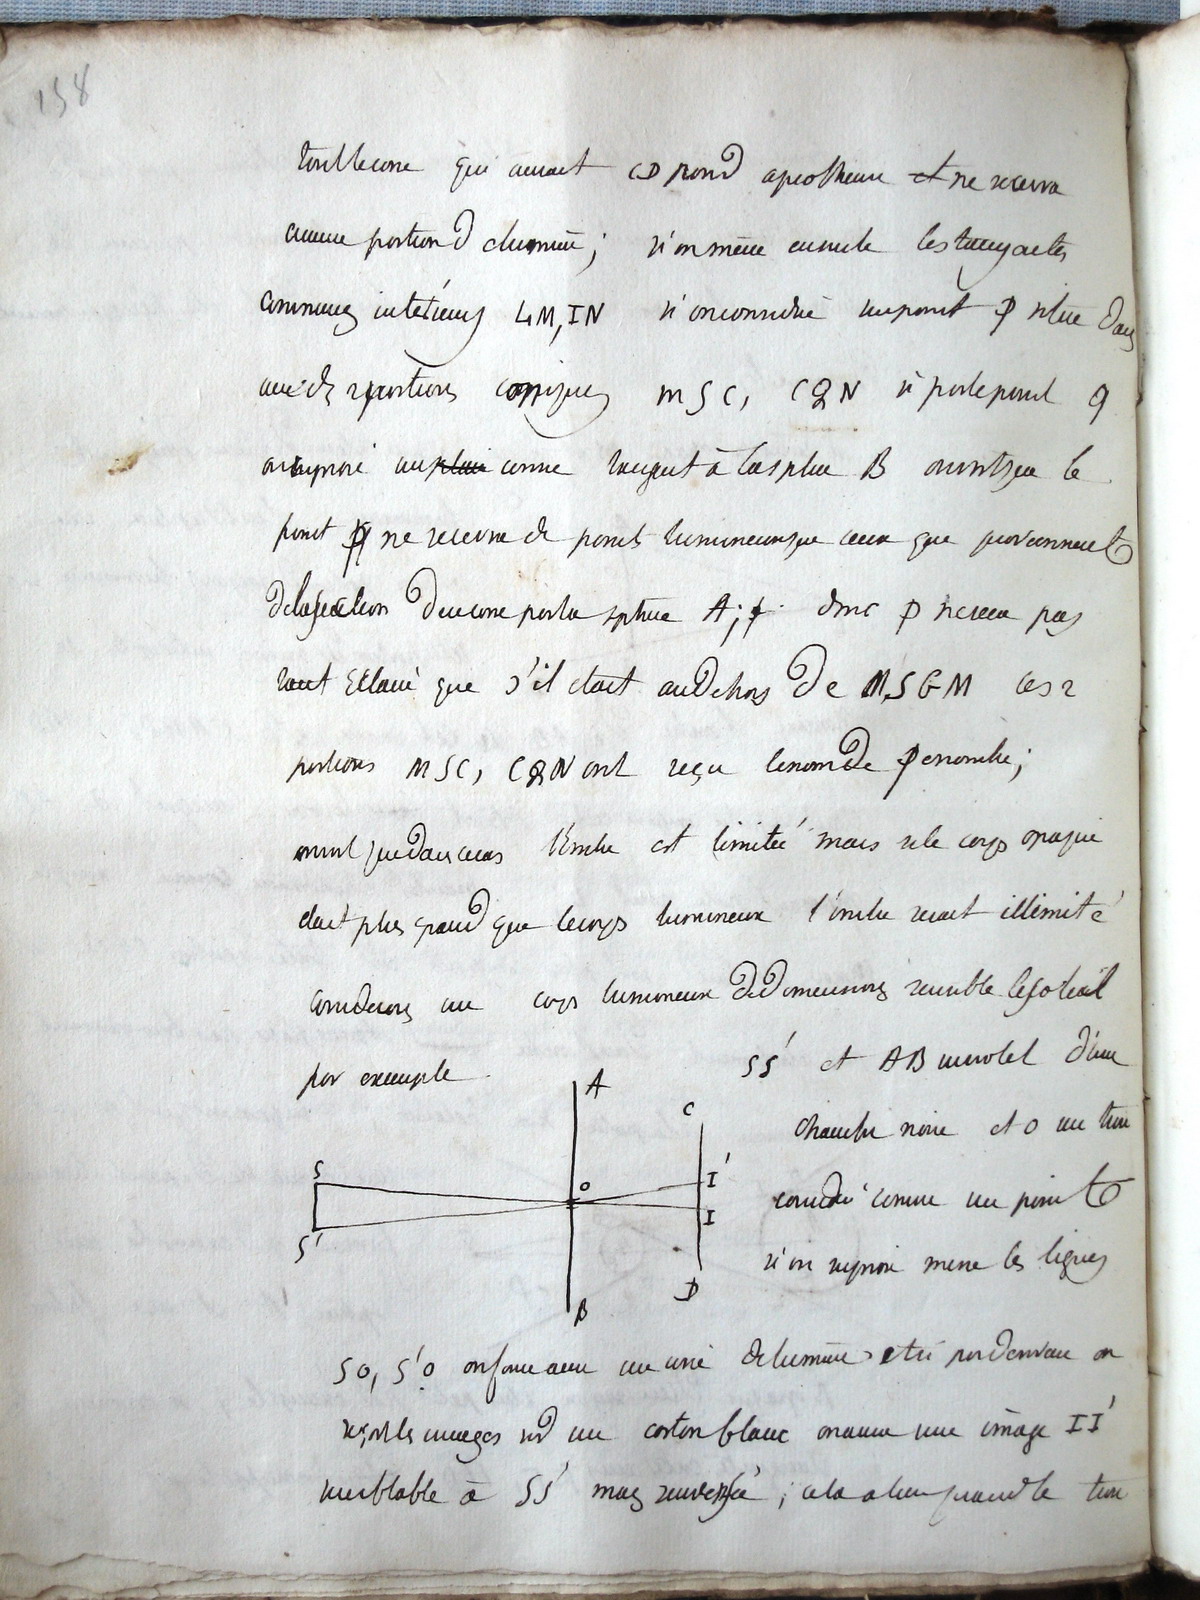 158
tout le cone qui aurait CD pour apotheme et ne recevra
aucune portion de lumière; si on mène ensuite les tangentes
communes intérieures LM, IN si on considère un point P situé dans
une des 2 portions coniques MSC, CQN si par le point q
on suppose un cone tangent à la sphère B on voit que le
point P ne recevra de points lumineux que ceux que proviennent
de la section du cone par la sphère A; donc P ne sera pas
tant éclairé que s'il était au dehors de MSGM ces 2
portions MSC, CQN ont reçu le nom de Penombre;
on voit que dans ce cas l'ombre est limitée mais si le corps opaque
était plus grand que le corps lumineux l'ombre serait illimité
Considérons un corps lumineux de dimensions sensible le soleil
par exemple SS' et AB un volet d'une
chambre noire et O un trou
considéré comme un point
si on suppose mené les lignes
A
C
S
O
I'
I
S'
D
B
SO, S'O on formera un cone de lumière et si par derrière on
reçoit les images sur un carton blanc on aura une image II'
semblable à SS' mais renversée; cela a lieu quand le trou